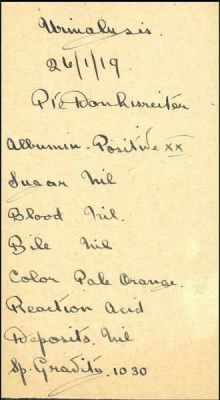 Urinalysis.
26/1/19.
Pte Donhisreiter
Albumin - Positive xx
Sugar Nil
Blood Nil.
Bile Nil
Color Pale Orange.
Reaction Acid
Deposits, Nil
Sp. Gravity. 1030